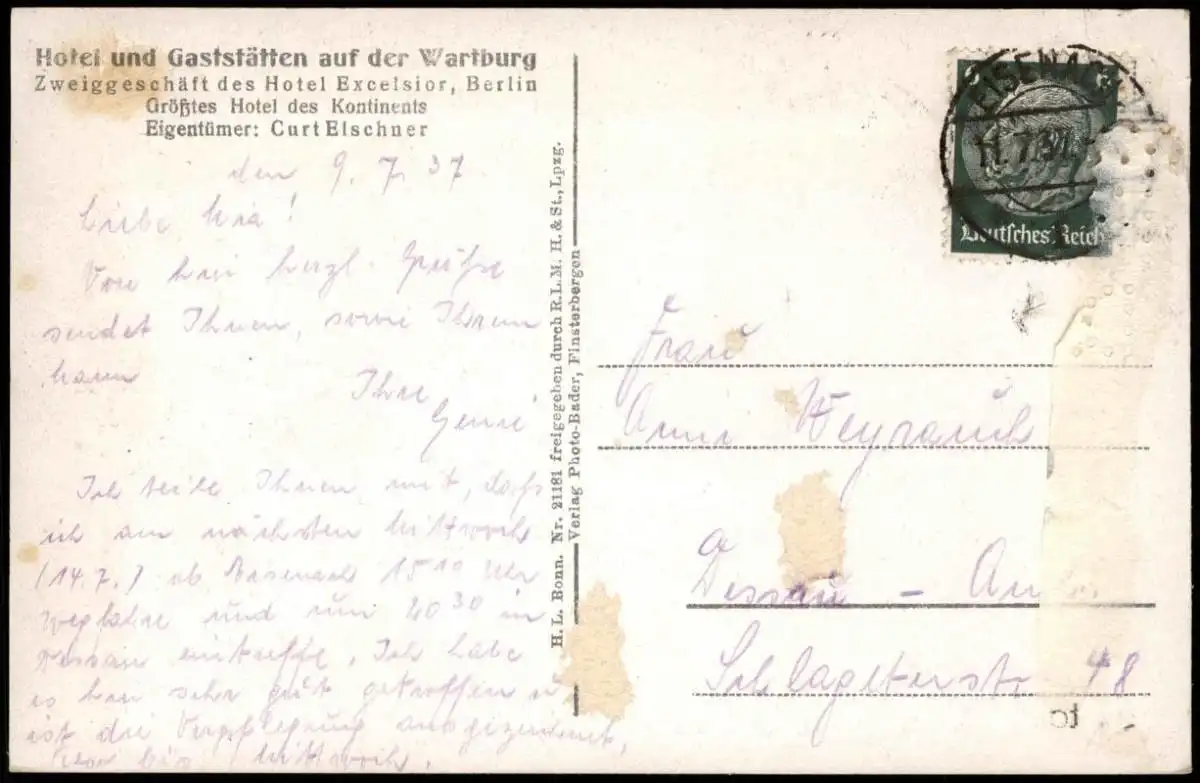 Hotel und Gaststätten auf der Wartburg
Zweiggeschäft des Hotel Excelsior, Berlin
Größtes Hotel des Kontinents
Eigentümer: Curt Elschner
den 9. 7. 37.
Liebe
Von hier herzl. Grüße
sendet Ihnen, sowie Ihrem
Mann
Ihre
Ich teile Ihnen mit, daß
ich am nächsten Mittwoch
(14.7.) ab Eisenach 15 10 Uhr
wegfahre und um 20 30 in
Dessau eintreffe. Ich habe
es hier sehr gut getroffen u.
ist die Verpflegung ausgezeichnet,
bis Mittwoch.
H. L. Bonn. Nr. 21181 freigegeben durch R.L.M. H. & St., Lpzg.
Verlag Photo-Bader, Finsterbergen
EISENACH
11.7.37
6
Deutsches Reich
Frau
Weyrauch
Dessau - An
Schlageterstr. 48